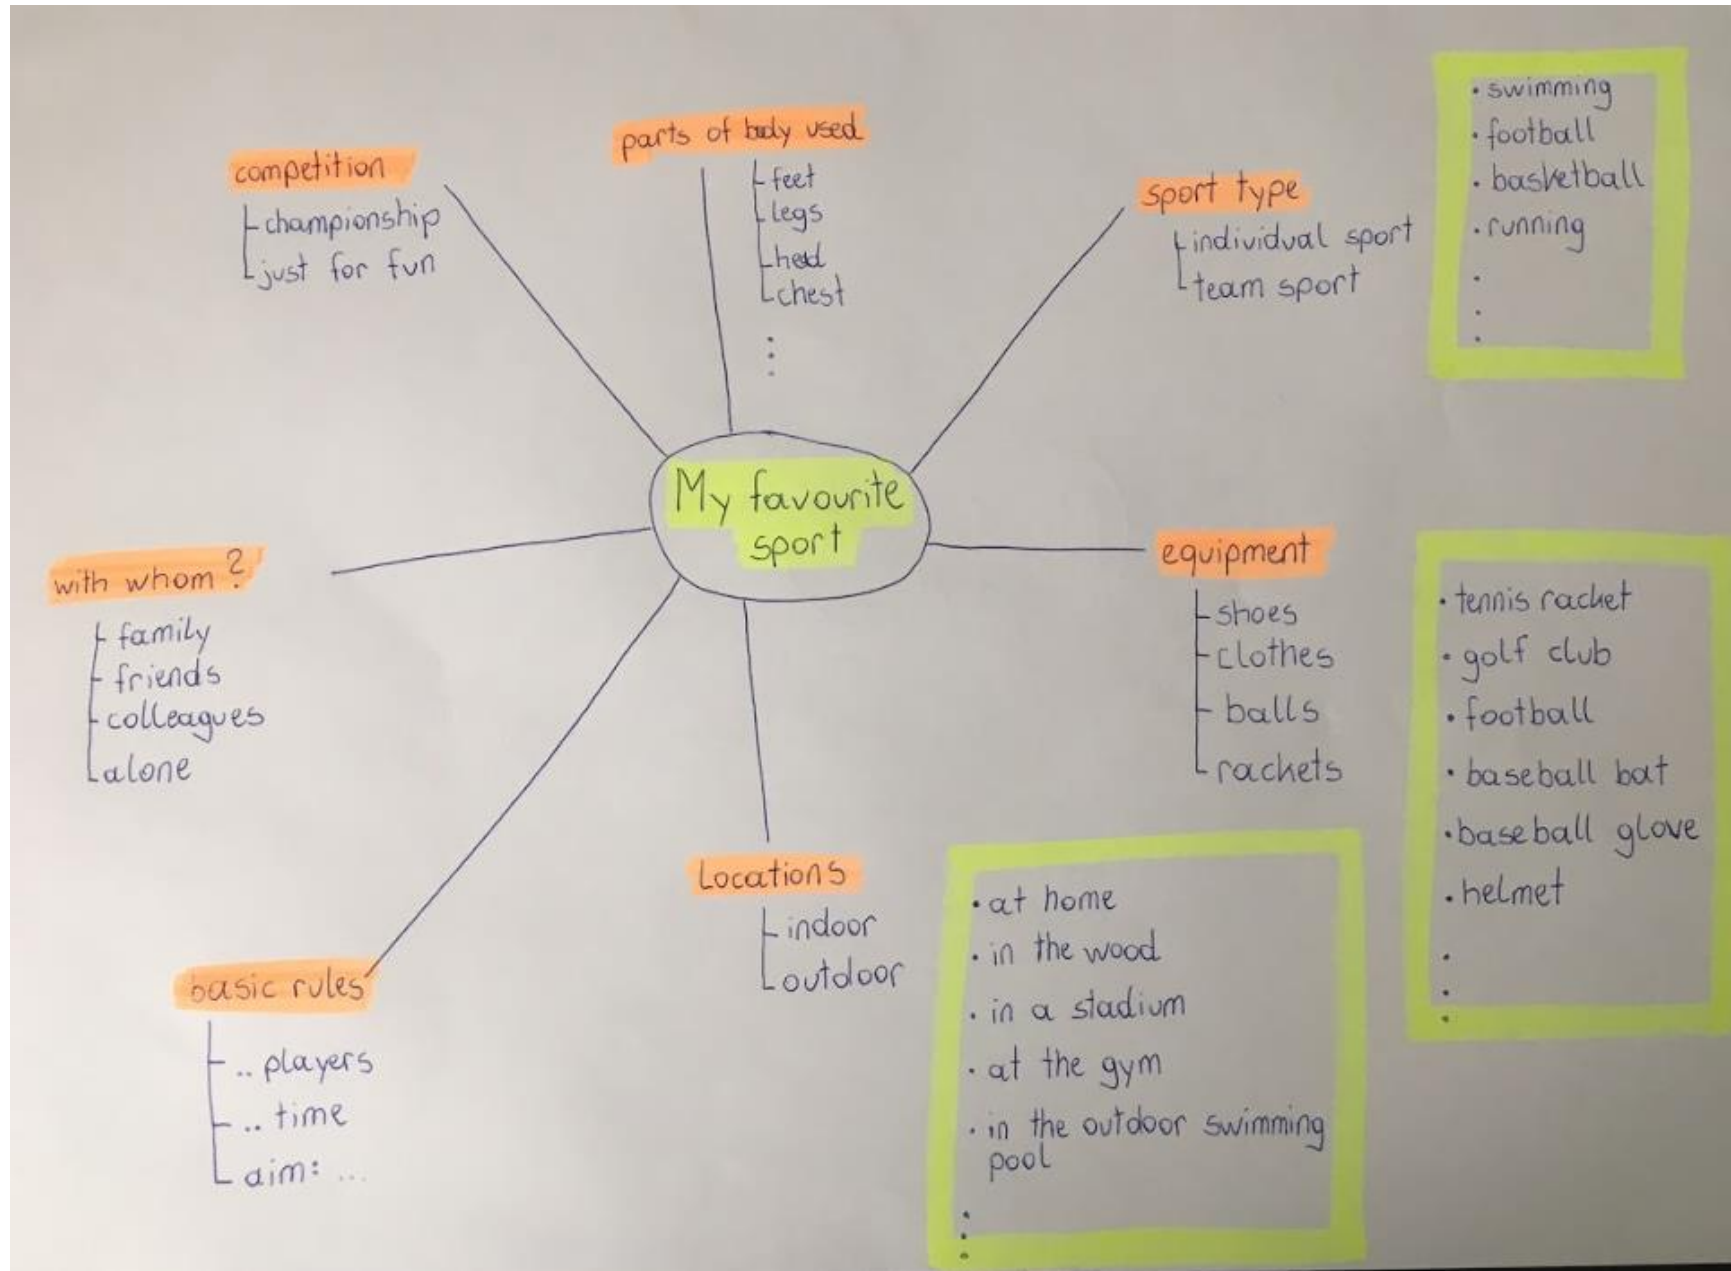 My favourite
sport
competition
championship
just for fun
parts of body used
feet
legs
head
chest
sport type
individual sport
team sport
• swimming
• football
• basketball
• running
equipment
shoes
clothes
balls
rackets
• tennis racket
• golf club
• football
• baseball bat
• baseball glove
• helmet
Locations
indoor
outdoor
• at home
• in the wood
• in a stadium
• at the gym
• in the outdoor swimming
pool
basic rules
.. players
.. time
aim: ...
with whom?
family
friends
colleagues
alone